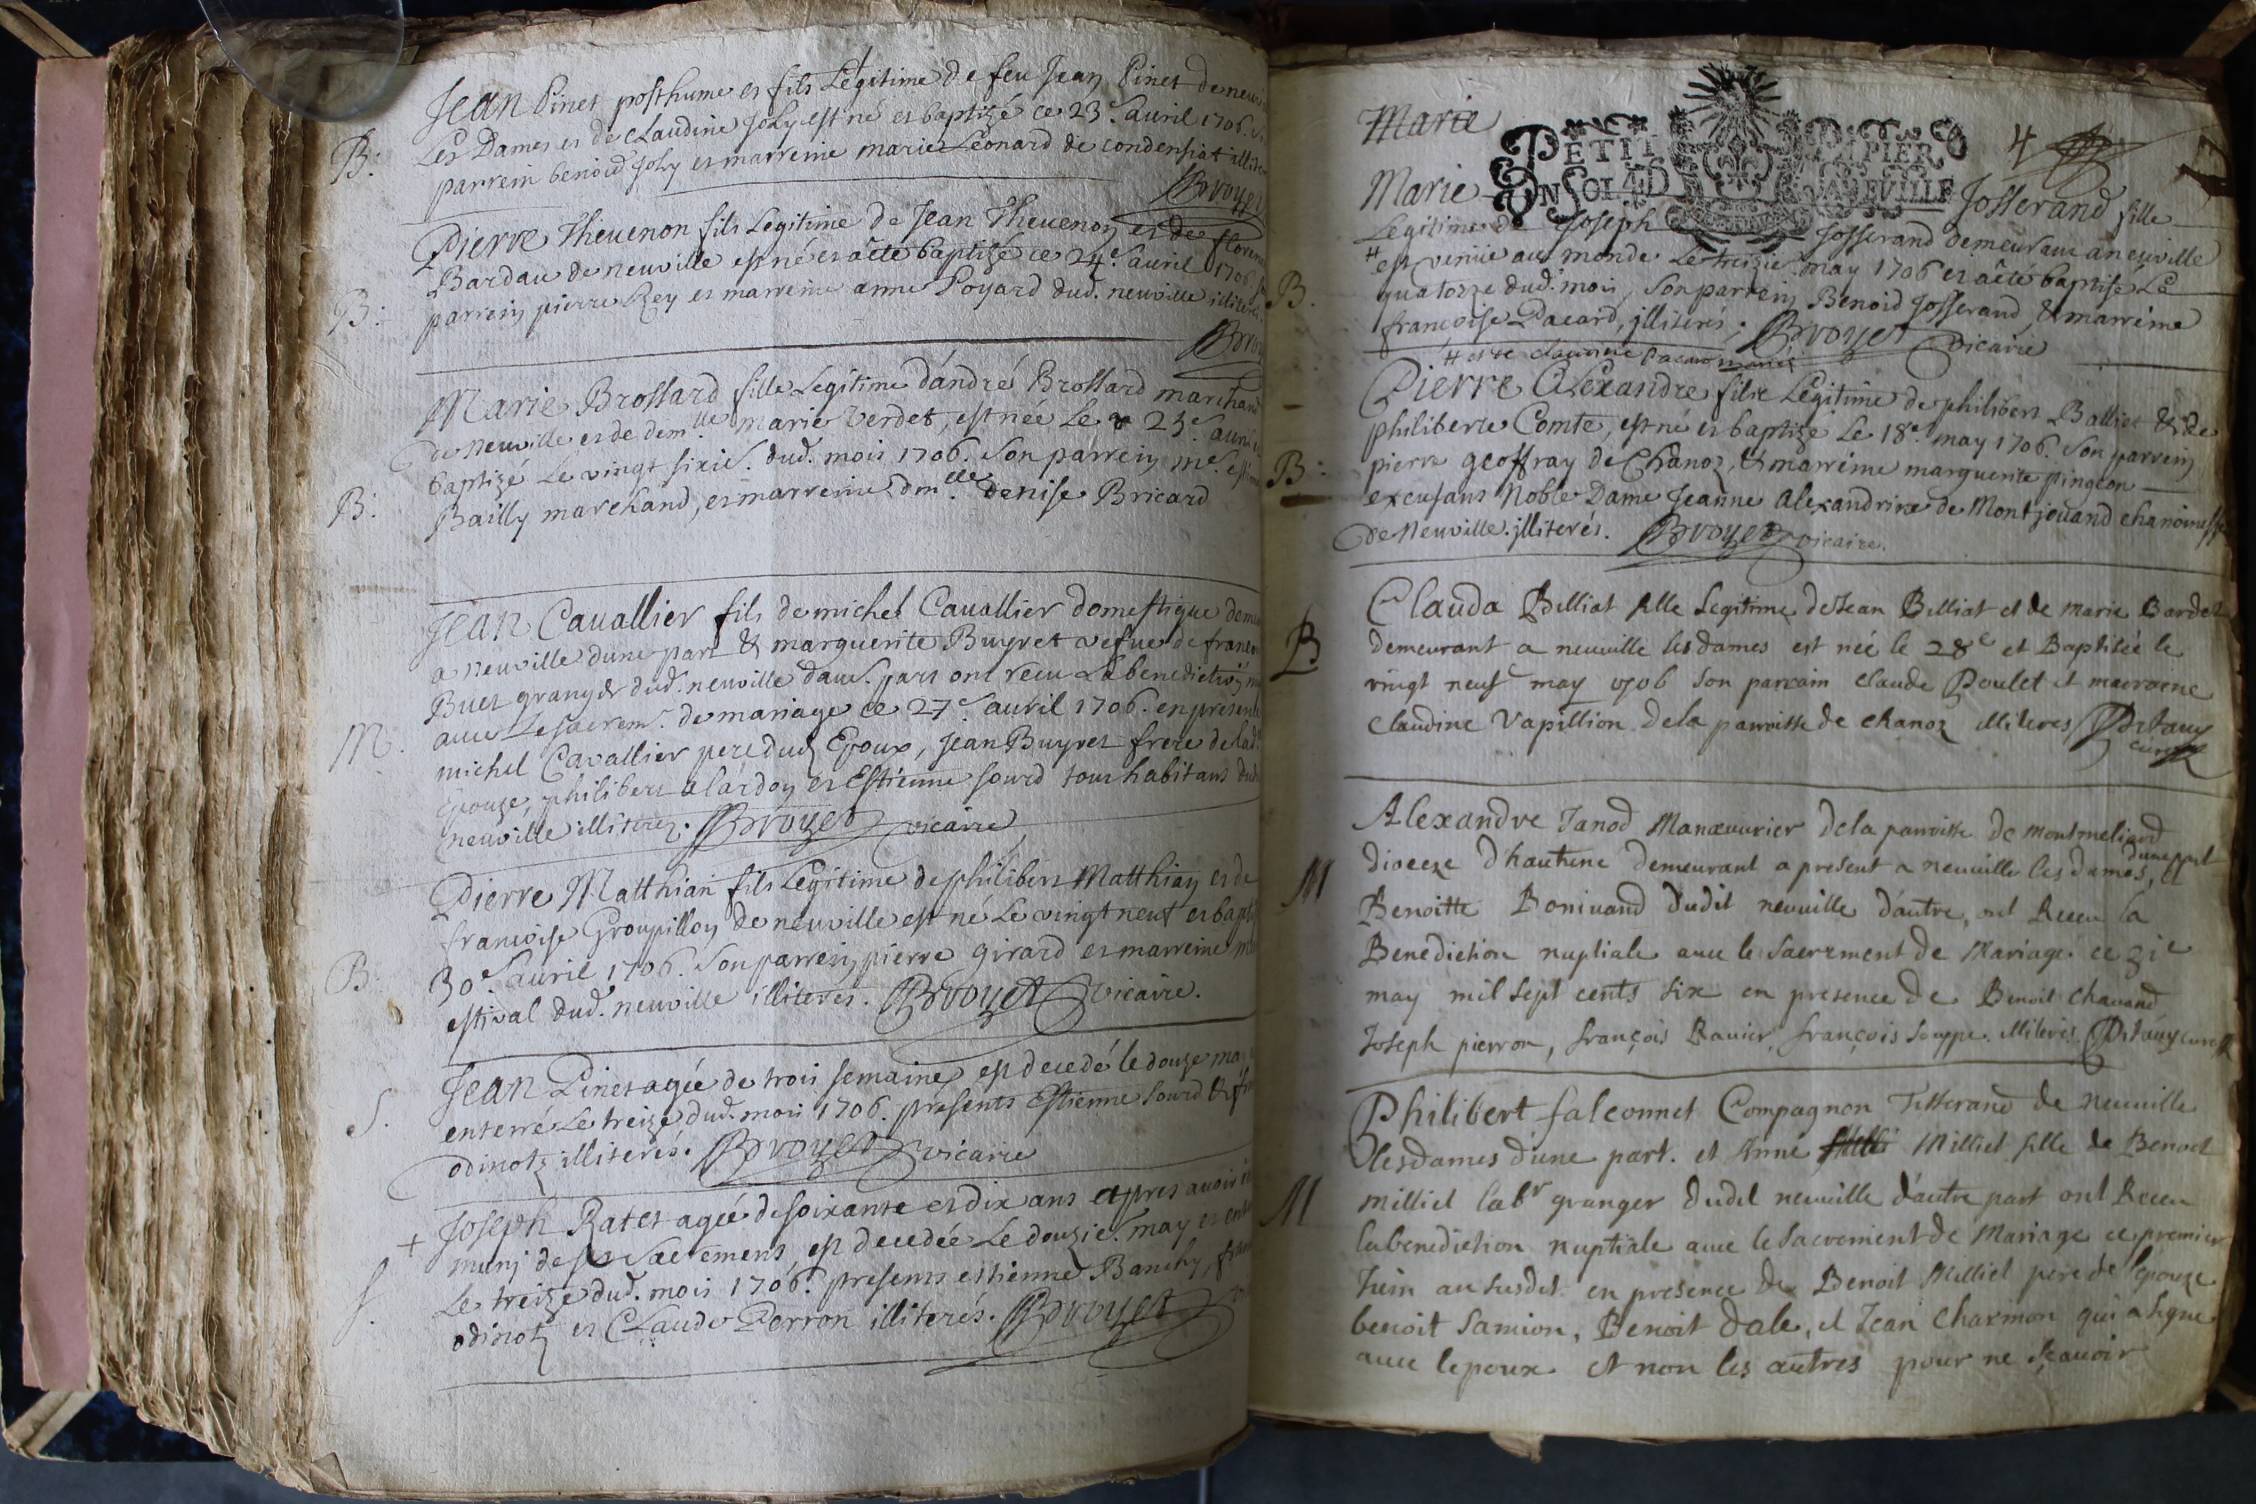 Jean Pinet posthume et fils Legitime de feu Jean Pinet de
Les Dames et de claudine Joly est né et baptizé ce 23e. auril 1706.
B:
parrein benoid Joly et marreine marie Leonard de condensiat
Broyer
Pierre Theuenon fils Legitime de Jean Theuenon et de
Bardau de neuville est né et a été baptizé ce 24e. auril 1706
B:
parrein pierre Rey et marreine anne Poyard dud. neuville
Marie Brossard fille Legitime d'andré Brossard marchand
de neuville et de demlle marie Verdet, est née Le 23e.
baptizé Le vingt sixie. dud. mois 1706. Son parrein me.
B:
Bailly marchand, et marreine dmlle. denise Bricard
Jean Cauallier fils de michel Cauallier domestique
a neuville d'une part & marguerite Buyret vefue de
Buet granger dud. neuville dau. part ont receu La benediction
M.
auec Le sacremt. de mariage ce 27e. auril 1706. en
michel Cavallier pere dud Epoux, Jean Buyret frere de
Epouze, philibert alardon et Estienne sourd tous habitans
neuville illiterez. Broyer vicaire
Pierre Matthian fils Legitime de philibert Matthian et de
francoise Groupillon de neuville est né Le vingt neuf et
B.
30e. auril 1706. Son parrein pierre girard et marreine
estival dud. neuville illiteres. Broyer vicaire.
Jean Pinet agée de trois semaines est decedé le douze
S.
enterré Le treize dud. mois 1706. présents Estienne sourd &
odinotz illiterés. Broyer vicaire
+ Joseph Ratet agée de soixante et dix ans apres auoir
muni de ses sacremens est decedée Le douzie. may et
S.
Le treize dud. mois 1706. presents estienne Banchy,
odinotz et Claude Perron illiterés. Broyer
Marie
PETIT PAPIER
UN SOL 4 D LA FEUILLE
4
Marie Josserand fille
Legitime de Joseph Josserand demeurant a neuville
# est venüe au monde Le treizie. may 1706 et a êté baptisé Le
B.
quatorze dud. mois, Son parrein Benoid Josserand, & marreine
françoise Pacard, jlliterés. Broyer vicaire
# et de claudine Pacard mariés
Pierre Alexandre fils Legitime de philibert Balliet & de
philiberte Comte, est né et baptizé Le 18e. may 1706. Son parrein
B:
pierre geoffray de Chanoz, & marreine marguerite pingeon
excusans Noble Dame Jeanne Alexandrine de Montjouand chanoinesse
de Neuville. jlliterés. Broyer vicaire.
Clauda Billiat fille Legitime de Jean Billiat et de marie Bardet
B
demeurant a neuuille les dames est née le 28e et Baptisée le
vingt neuf may 1706 son parrain claude Poulet et marraine
claudine Vapillion de la parroisse de chanoz illiteres
curé
Alexandre Janod Manœuurier de la parroisse de montmeliard
dioceze d'hautune demeurant a present a neuuille les dames, d'une part
M
Benoitte Boniuand dudit neuuille d'autre, ont Receu la
Benediction nuptiale auec le sacrement de Mariage ce 31e
may mil sept cents six en presence de Benoit chauand
Joseph pierron, françois Rauier, françois souppe illiterés
Philibert falconnet Compagnon Tisserand de neuuille
les dames d'une part. et Anne Milliet fille de Benoit
M
milliet labr granger dudit neuuille d'autre part ont Receu
la benediction nuptiale auec le sacrement de Mariage ce premier
Juin an susdit en presence de Benoit Milliet pere de l'epouze
benoit Samion, Benoit dale, et Jean Charmon qui a signé
auec l'epoux et non les autres pour ne sçauoir